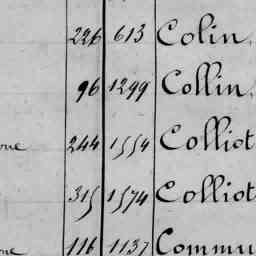 226 613 Colin
96 1299 Collin
244 1554 Colliot
315 1574 Colliot
116 1137 Commu